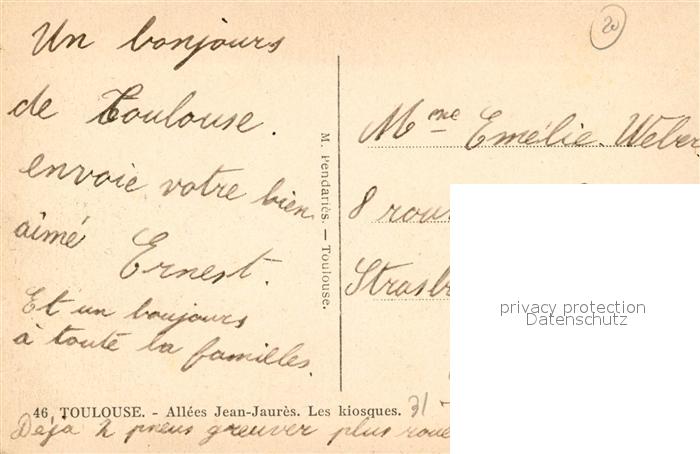 Un bonjours
de Toulouse.
envoie votre bien
aimé Ernest.
Et un boujours
à toute la familles.
46 TOULOUSE. - Allées Jean-Jaurès. Les kiosques. 31 -
Déjà 2 pneus greuver plus roue
M. Pendariès. — Toulouse.
20
Mme Emélie. Weber
8 rou
Strasb
privacy protection
Datenschutz